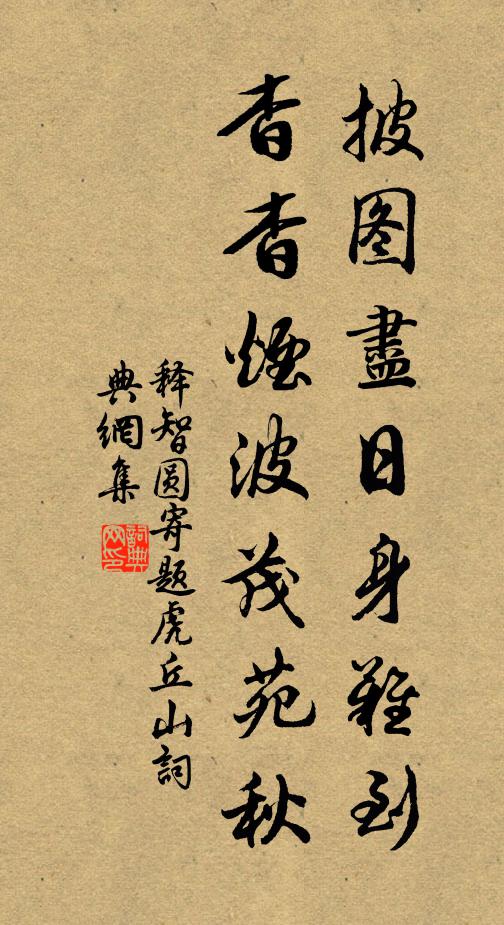 披图盡日身難到
杳杳煙波茂苑秋
释智圆寄题虎丘山詞
典網集
詞典
网印